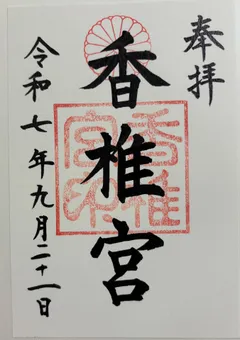 奉拝
香椎宮
令和七年九月二十一日
香椎宮印